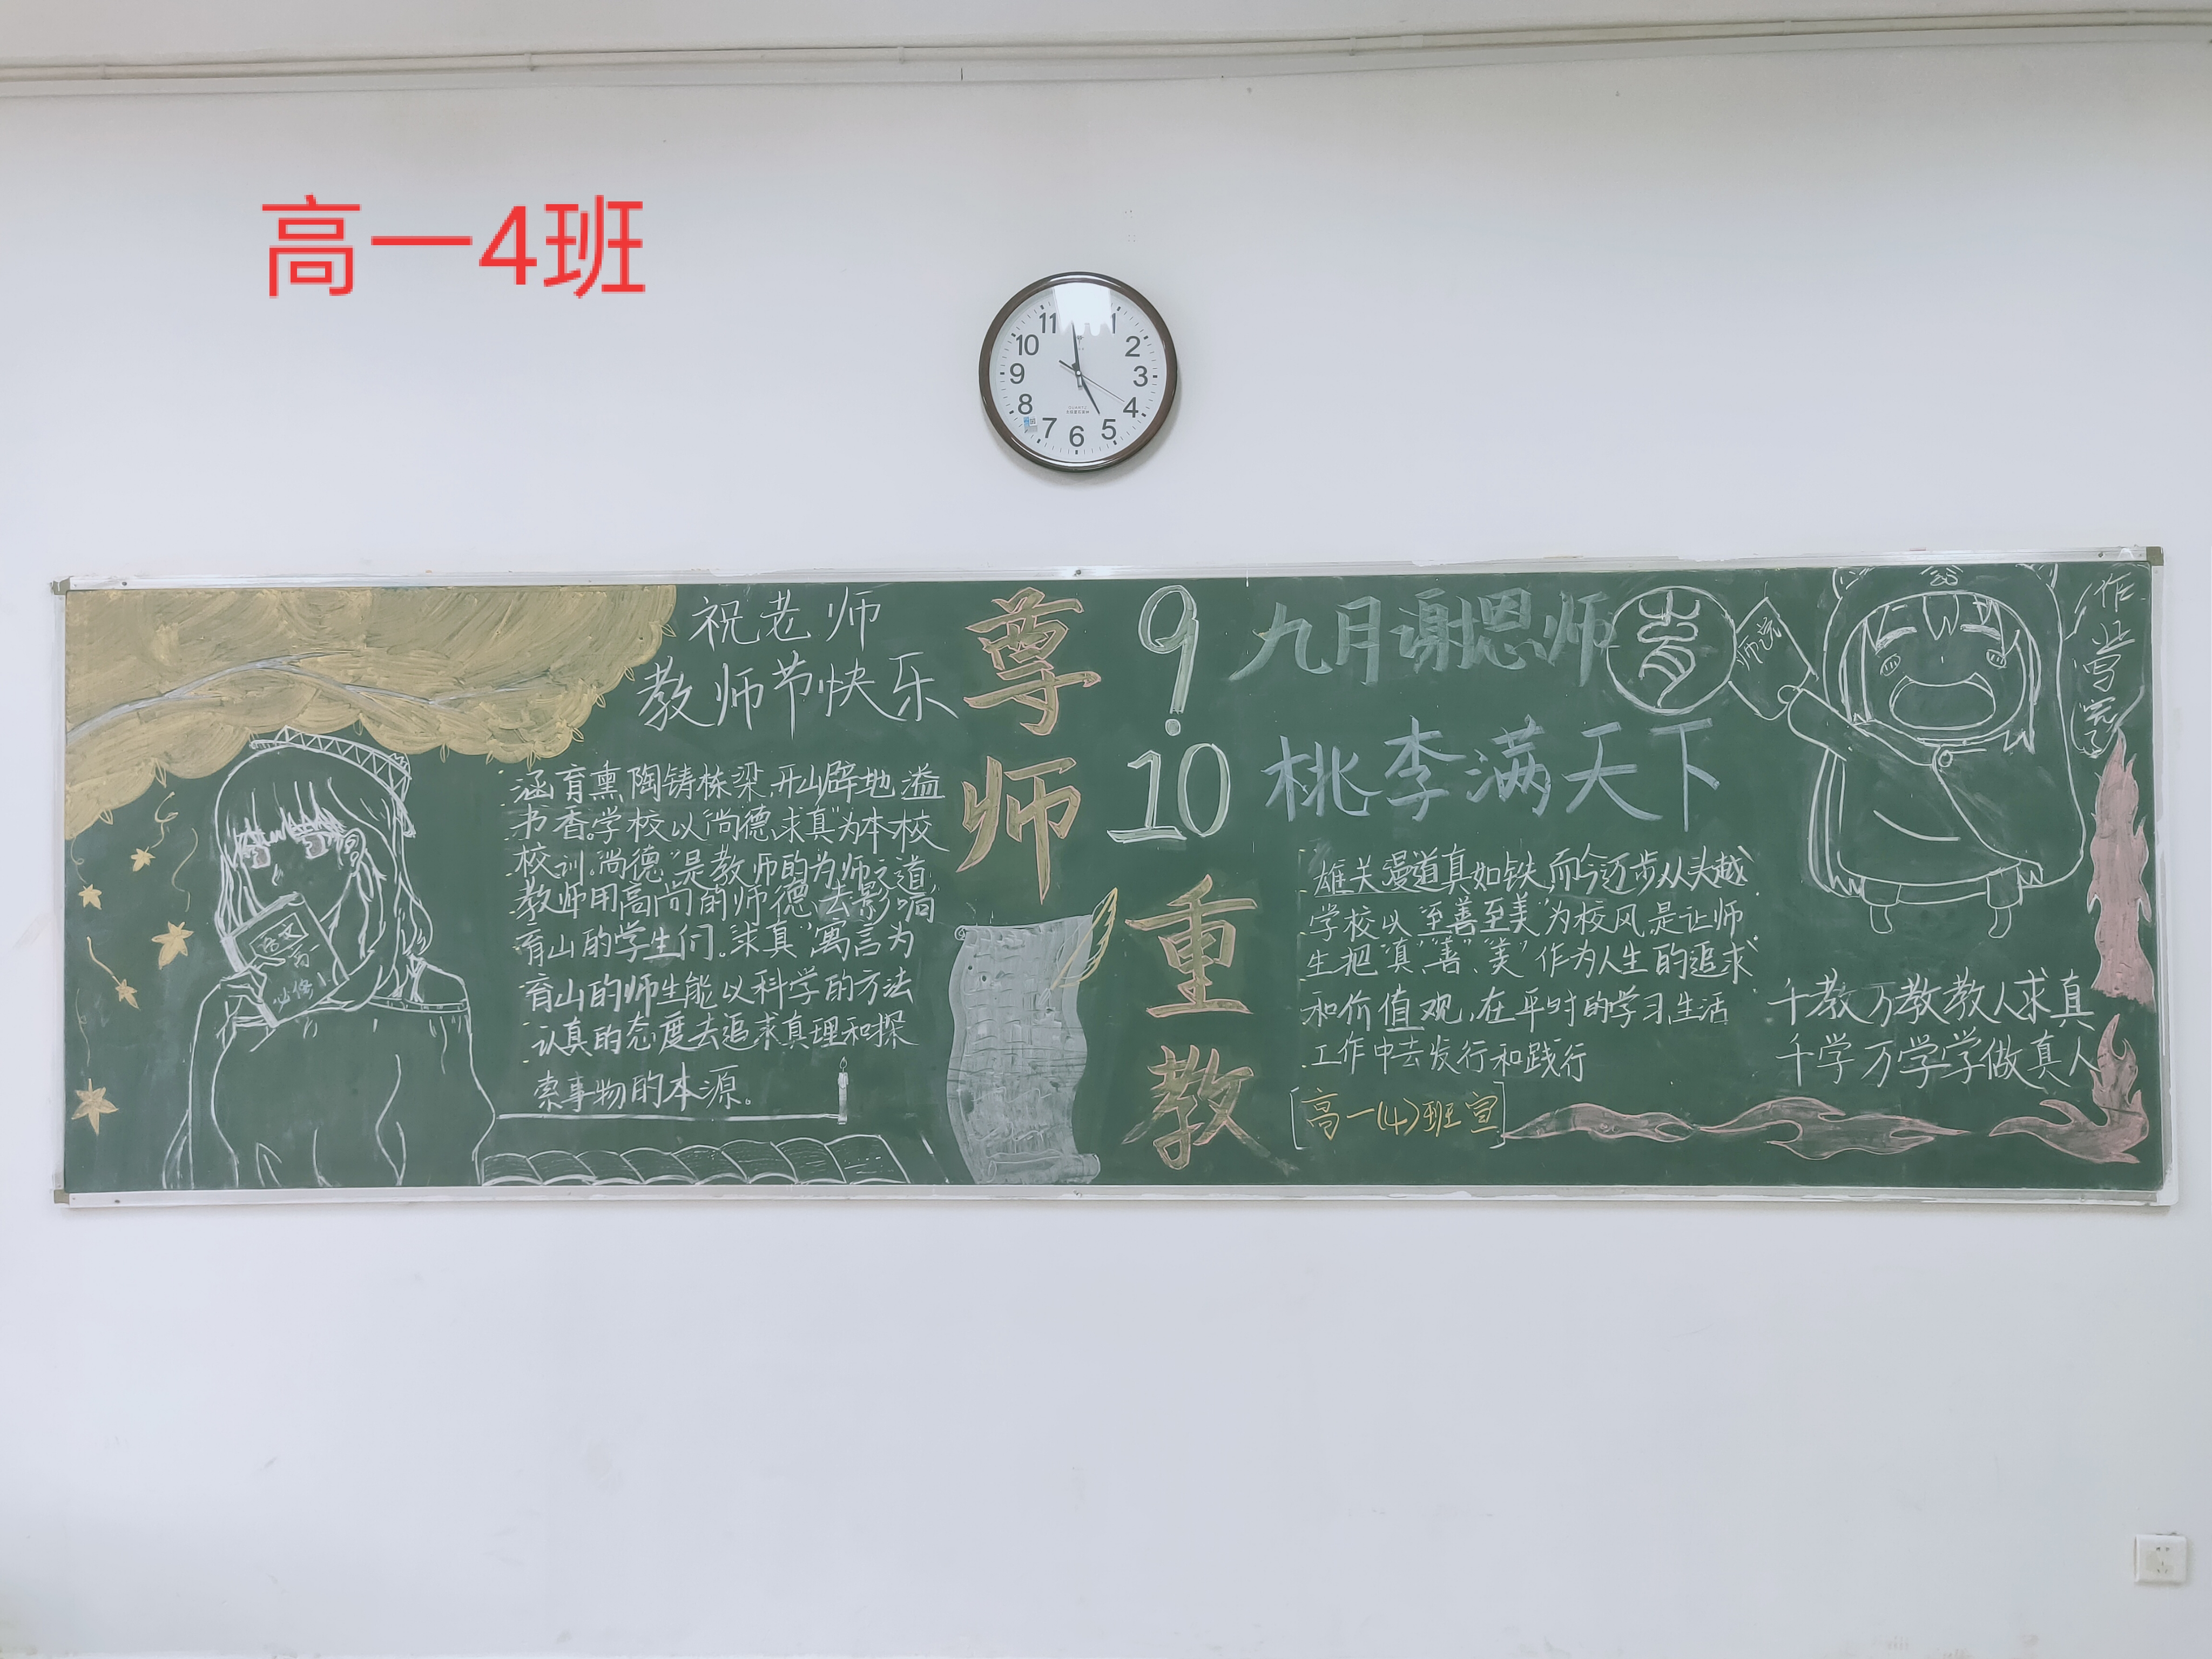 高一4班
11
1
10
2
9
3
8
4
7
6
5
QUARTZ
祝老师
教师节快乐
涵育熏陶铸栋梁,开山辟地溢
书香。学校以“尚德、求真”为本校
校训。“尚德”是教师的为师之道
教师用高尚的师德去影响
育山的学生们。“求真”寓言为
育山的师生能以科学的方法
认真的态度去追求真理和探
索事物的本源。
语文
必修
尊师
重教
9.10
九月谢恩师
桃李满天下
雄关漫道真如铁,而今迈步从头越
学校以“至善至美”为校风,是让师
生把“真”、“善”、“美”作为人生的追求
和价值观,在平时的学习,生活
工作中去发行和践行
[高一(4)班宣]
作业写完了
千教万教教人求真
千学万学学做真人